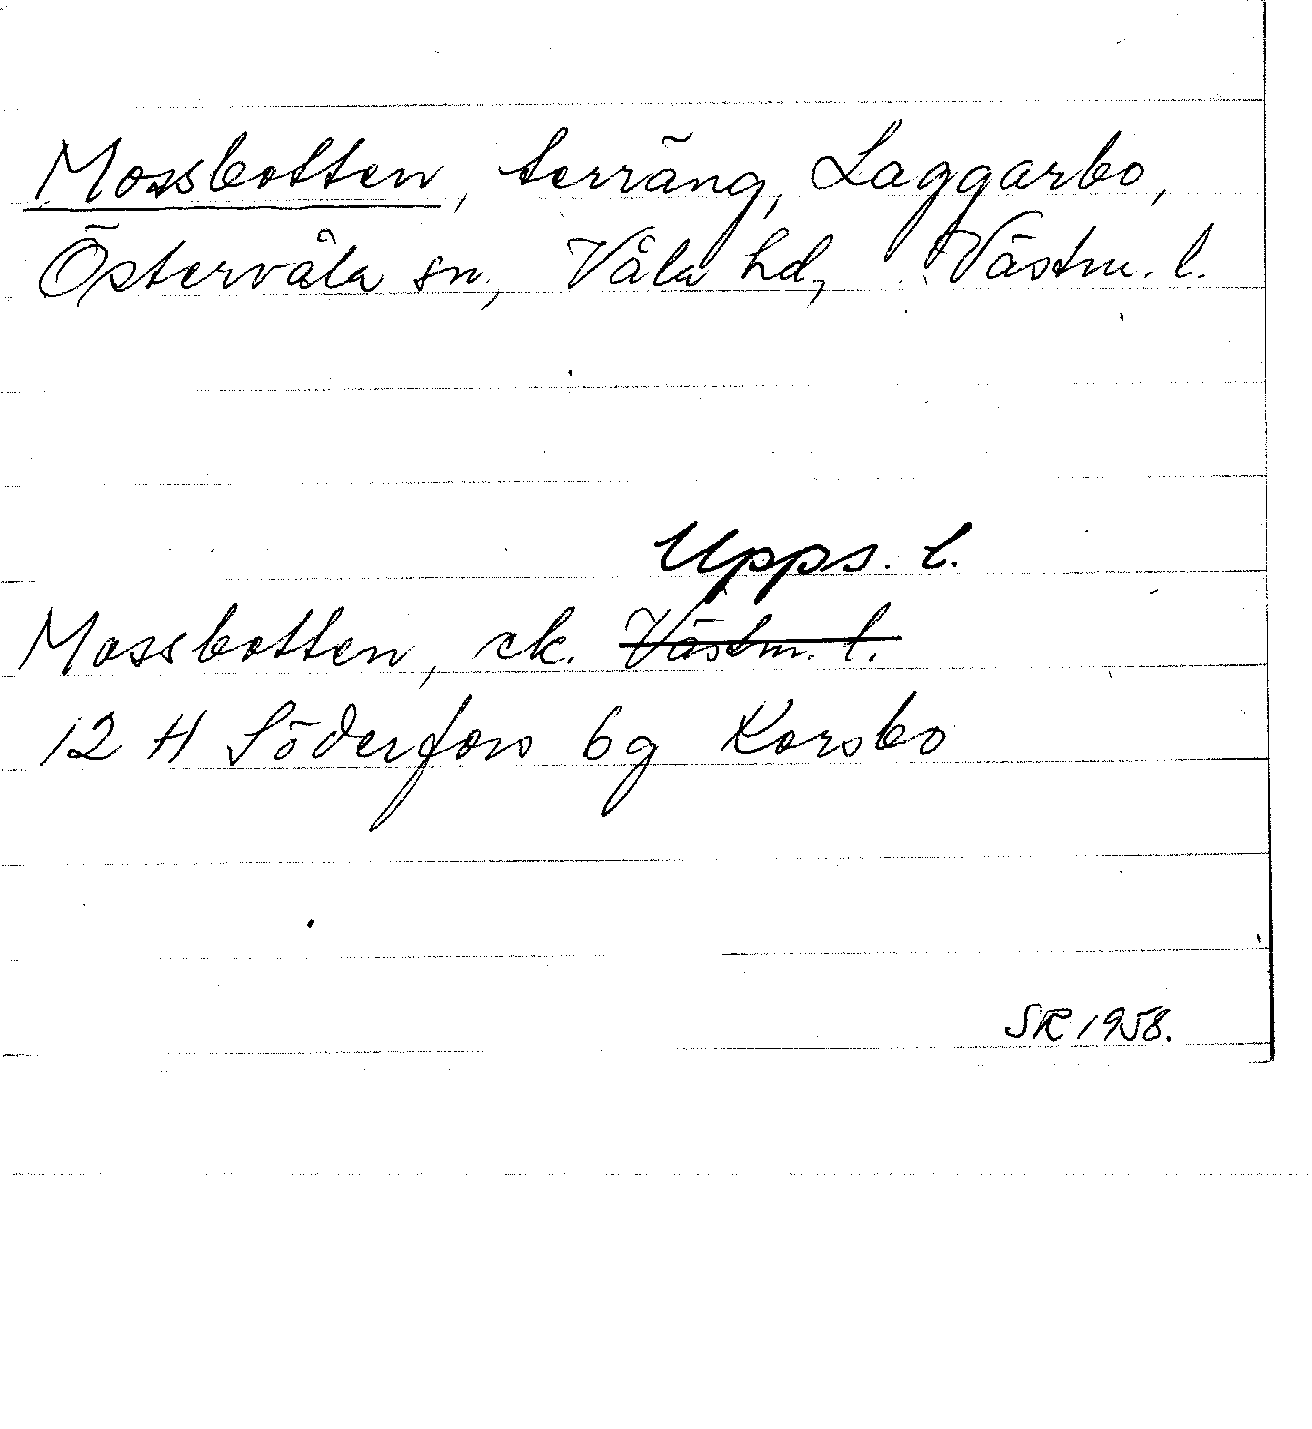 Mossbotten, terräng, Laggarbo,
Östervåla sn, Våla hd, Västm. l.
Upps. l.
Mossbotten, ek. Västm. l.
12 H Söderfors 6g Korsbo
SR 1958.